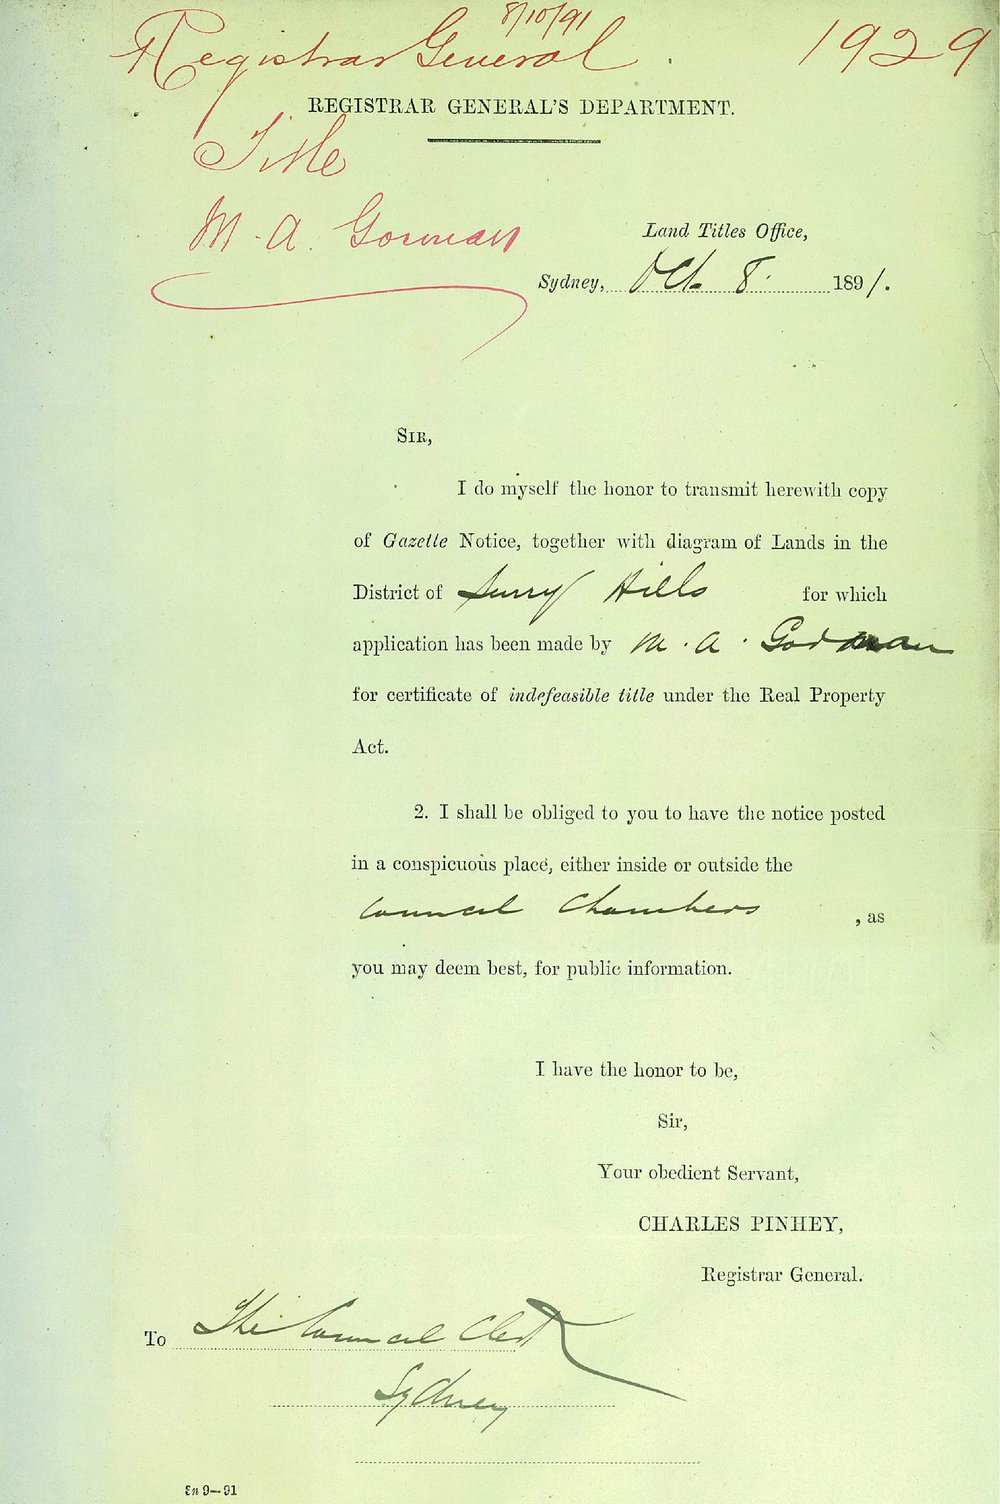 8/10/91
Registrar General. 1929
REGISTRAR GENERAL'S DEPARTMENT.
Title
M. A. Gorman
Land Titles Office,
Sydney, Oct. 8. 1891.
SIR,
I do myself the honor to transmit herewith copy
of Gazette Notice, together with diagram of Lands in the
District of Surry Hills for which
application has been made by M. A. Godman
for certificate of indefeasible title under the Real Property
Act.
2. I shall be obliged to you to have the notice posted
in a conspicuous place, either inside or outside the
Council Chambers, as
you may deem best, for public information.
I have the honor to be,
Sir,
Your obedient Servant,
CHARLES PINHEY,
Registrar General.
To The Council Clerk
Sydney
9—91